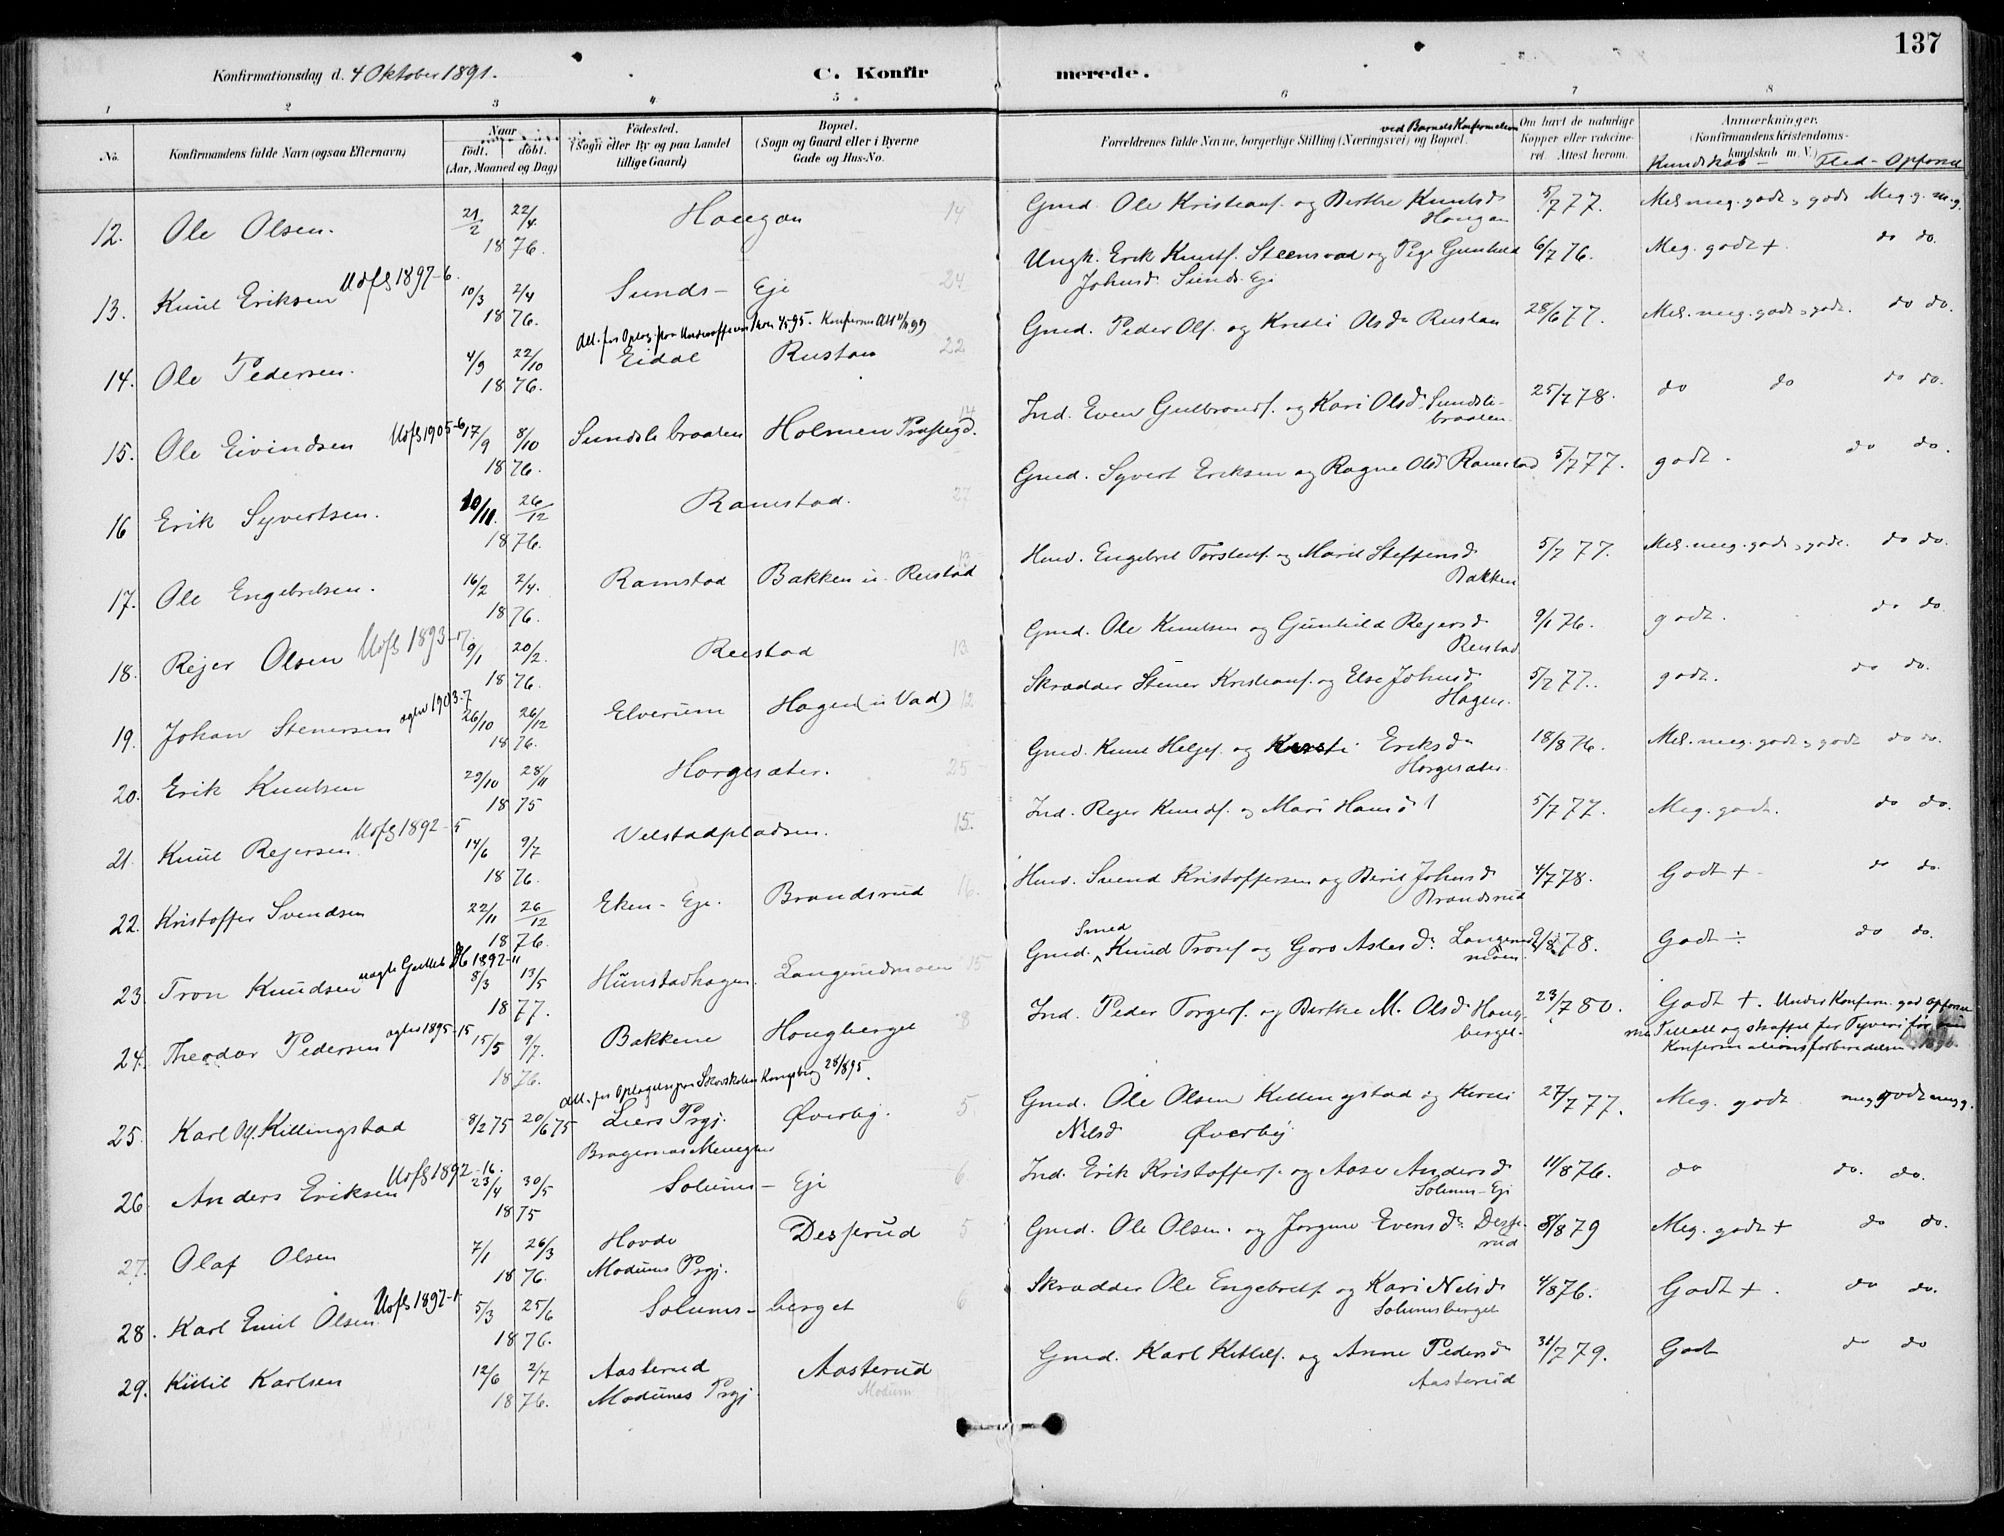 137
Konfirmationsdag d. 4 Oktober 1891. C. Konfirmerede.
1 2 3 4 5 6 7 8
No. Konfirmandens fulde Navn (ogsaa Efternavn) Naar født. døbt. (Aar, Maaned og Dag) Fødested. (Sogn eller By og paa Landet tillige Gaard) Bopæl. (Sogn og Gaard eller i Byerne Gade og Hus-No. Forældrenes fulde Navne, borgerlige Stilling (Næringsvei) og Bopæl. ved Barnets Konfirmation Om havt de naturlige Kopper eller vakcineret. Attest herom. Anmærkninger. (Konfirmandens Kristendomskundskab m. V.) Kundskab - Flid - Opførsel
12. Ole Olsen. 21/2 22/4 1876. Hougan 14 Gmd. Ole Kristians. og Berthe Knutsd. Hougan 5/7 77. Mel. meg. godt og godt Meg g. m.g.
13. Knut Eriksen Udfl 1897-6. 10/3 2/4 1876. Sunds - Eje 24 Ungk. Erik Knuts. Steensvad og Pige Gunhild Johnsd. Sunds. Eje 6/7 76. Meg. godt + do do.
14. Ole Pedersen. 4/9 22/10 1876. Eidal Rustan 22 Gmd. Peder Ols. og Kristi Olsd. Rustan 28/6 77. Mel. meg. godt og godt. do do.
15. Ole Eivindsen Udfl 1905-6 17/9 8/10 1876. Sundslibraaten Holmen Præstegd. 14 Ind. Even Gulbrands. og Kari Olsd. Sundslibraaten 25/7 78. do do do do.
16 Erik Syvertsen. 10/11. 26/12 1876. Ramstad. 27 Gmd. Syvert Eriksen og Ragne Olsd. Ramstad 5/7 77. godt. do do.
17. Ole Engebretsen. 16/2 2/4. 1876. Ramstad Bakken u. Reistad 13 Hmd. Engebret Torstens. og Marit Steffensd. Bakken 5/7 77. Mel. meg. godt og godt. do do.
18. Rejer Olsen Udfl 1893-17 9/1 20/2. 1876. Reistad 13 Gmd. Ole Knutsen og Gunhild Rejersd. Reistad 9/1 76. godt. do do.
19. Johan Stenersen 1903-7 26/10 26/12 1876. Elverum Hagen (u Vad) 12 Skrædder Stener Kristians. og Else Johnsd. Hagen. 5/7 77. godt. do do.
20. Erik Knutsen 29/10 28/11 1875 Horgesæter. 25 Gmd. Knut Helges. og Kersti Eriksd. Horgesæter 18/8 76. Mel. meg. godt og godt do do.
21. Knut Rejersen. Udfl 1892-5 14/6 9/7 1876. Velstadpladsen. 15. Ind. Rejer Knuds. og Mari Hansd. 5/7 77. Meg. godt. do do.
22. Kristoffer Svendsen 22/11 26/12 1876. Eken - Eje. Brandsrud 16. Hmd. Svend Kristoffersen og Berit Johnsd. Brandsrud 4/7 78. Godt + do do.
23. Tron Knudsen 1892-11 8/3 13/5 1877. Hunstadhagen Langerudmoen 15 Gmd. Smed Knud Trons. og Goro Aslesd. Langerudmoen. 9/8 78. Godt ÷ do do.
24. Theodor Pedersen 1895-15 15/5 9/7. 1876. Bakkene Hougberget 8 Ind. Peder Torgers. og Berthe M. Olsd. Hougberget. 23/7 80. Godt +. Under Konferm. god Opførsel men Tiltalt og straffet for Tyveri før Konfermationsforberedelsen. 1890.
25. Karl Ols. Killingstad 8/2 75 20/6 75 Liers Prgj. Bragernæs Menighed Øverby. 5 Gmd. Ole Olsen Killingstad og Kirsti Nilsd. Øverby 27/7 77. Meg. godt meg godt meg g.
26. Anders Eriksen Udfl 1892-16. 23/4 30/5 1875 Solums - Eje 6 Ind. Erik Kristoffers. og Aase Andersd. Solums-Eje 11/8 76. do do. do.
27. Olaf Olsen 7/1 26/3 1876. Hovde Modums Prgj. Desserud 5 Gmd. Ole Olsen. og Jørgine Evensd. Desserud 8/8 79 Meg. godt + do do.
28. Karl Emil Olsen. Udfl 1897-1 5/3 25/6 1876. Solums - berget 6 Skrædder Ole Engebrets. og Kari Nilsd. Solumsberget 4/8 76. Godt +. do do.
29. Kittil Karlsen 12/6 2/7 1876. Aasterud Modums Prgj. Aasterud Modum Gmd. Karl Kittils. og Anne Pedersd. Aasterud 31/7 79. Godt do do